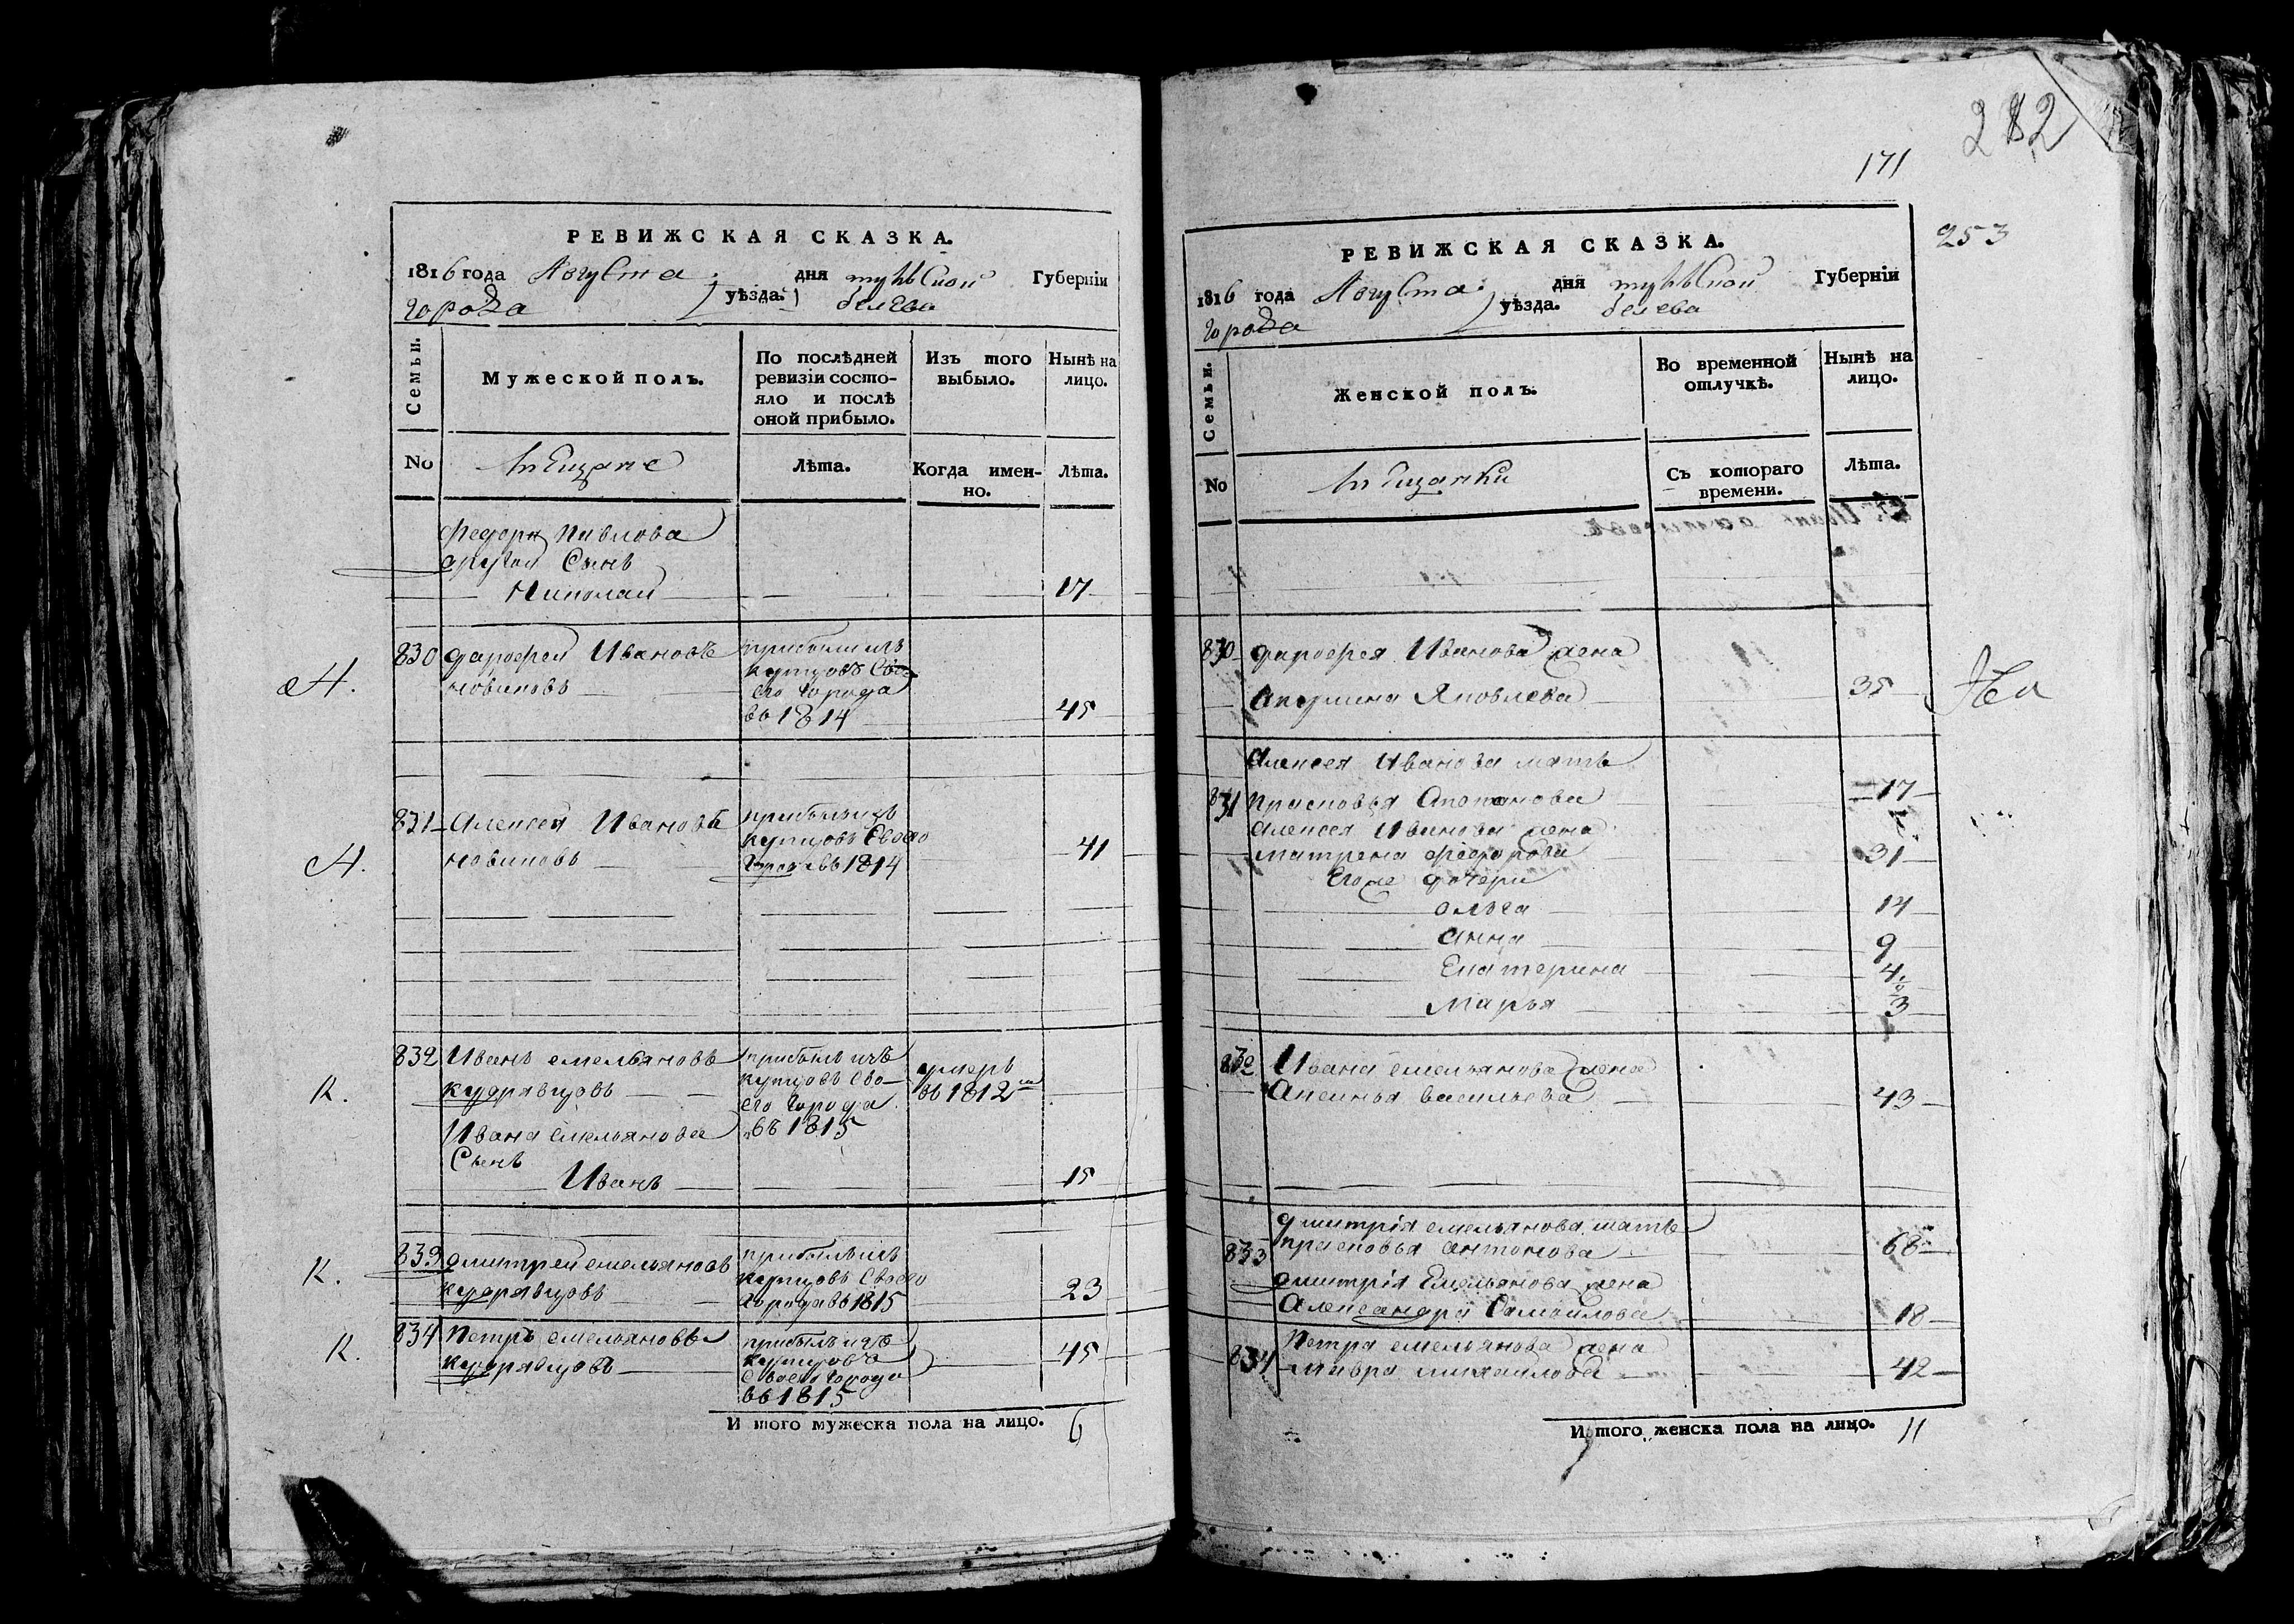 РЕВИЖСКАЯ СКАЗКА.
1816 года Августа дня тульской Губерніи
города уѣзда. белева
Семьи.
Мужеской полъ.
По послѣдней ревизіи состо-
яло и послѣ
оной прибыло.
Изъ того
выбыло.
Нынѣ на
лицо.
No
мещане
Лѣта.
Когда имен-
но.
Лѣта.
Федора Павлова
другой Сынъ
Николай 17
830 дарофей Ивановъ
новиковъ
прибыли изъ
купцовъ Сво
его города
въ 1814 45
Н.
831 Алексей Ивановъ
новиковъ
прибылъ изъ
купцовъ Своего
города въ 1814 41
Н.
832 Иванъ емельяновъ
кудрявцовъ
прибылъ изъ
купцовъ Сво-
его города
въ 1815
умеръ
въ 1812
К.
Ивана емельянова
Сынъ
Иванъ 15
833 дмитрей емельяновъ
кудрявцовъ
прибылъ изъ
купцовъ Своего
города въ 1815 23
К.
834 Петръ емельяновъ
кудрявцовъ
прибылъ изъ
купцовъ
Своего города
въ 1815 45
К.
И того мужеска пола на лицо. 6
282
171
253
РЕВИЖСКАЯ СКАЗКА.
1816 года Августа дня тульской Губерніи
города уѣзда. белева
Семьи.
Женской полъ.
Во временной
отлучкѣ.
Нынѣ на
лицо.
No
мещанки
Съ котораго
времени.
Лѣта.
830 дарофея Иванова жена
Акулина Яковлева 35
Алексея Иванова мать
831 Прасковья
Алексея Иванова жена
матрена федорова 31
Его же дочери
Ольга 14
Анна 9
Екатерина 4
Марья 3
832 Ивана емельянова жена
Аксинья васильева 43
дмитрія емельянова мать
833 Прасковья Антонова 68
дмитрія Емельянова жена
Александра Самойлова 18
Петра емельянова жена
834 мавра михайлова 42
И того женска пола на лицо. 11